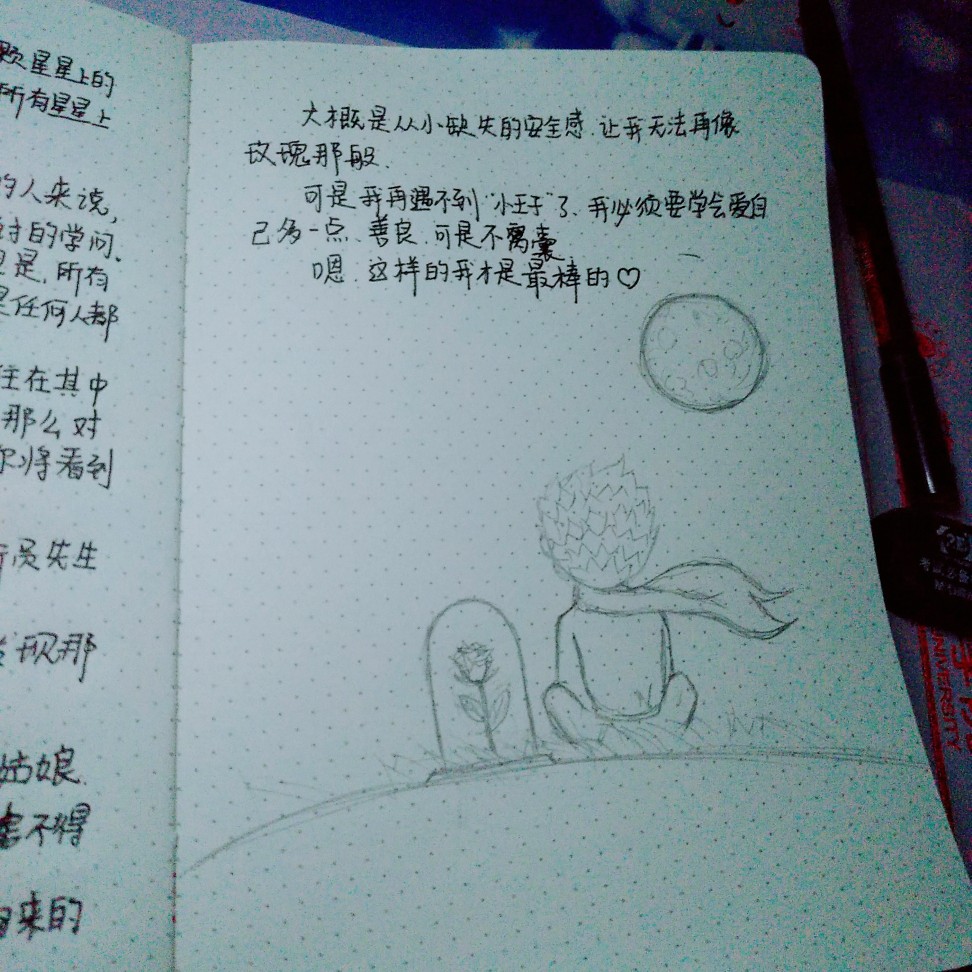 颗星星上的
所有星星上
的人来说,
讨的学问.
是,所有
是任何人都
住在其中
那么对
你将看到
员先生
现那
姑娘
不得
来的
大概是从小缺失的安全感.让我无法再像
玫瑰那般.
可是我再遇不到“小王子”了、我必须要学会爱自
己多一点、善良.可是不窝囊
嗯.这样的我才是最棒的♡